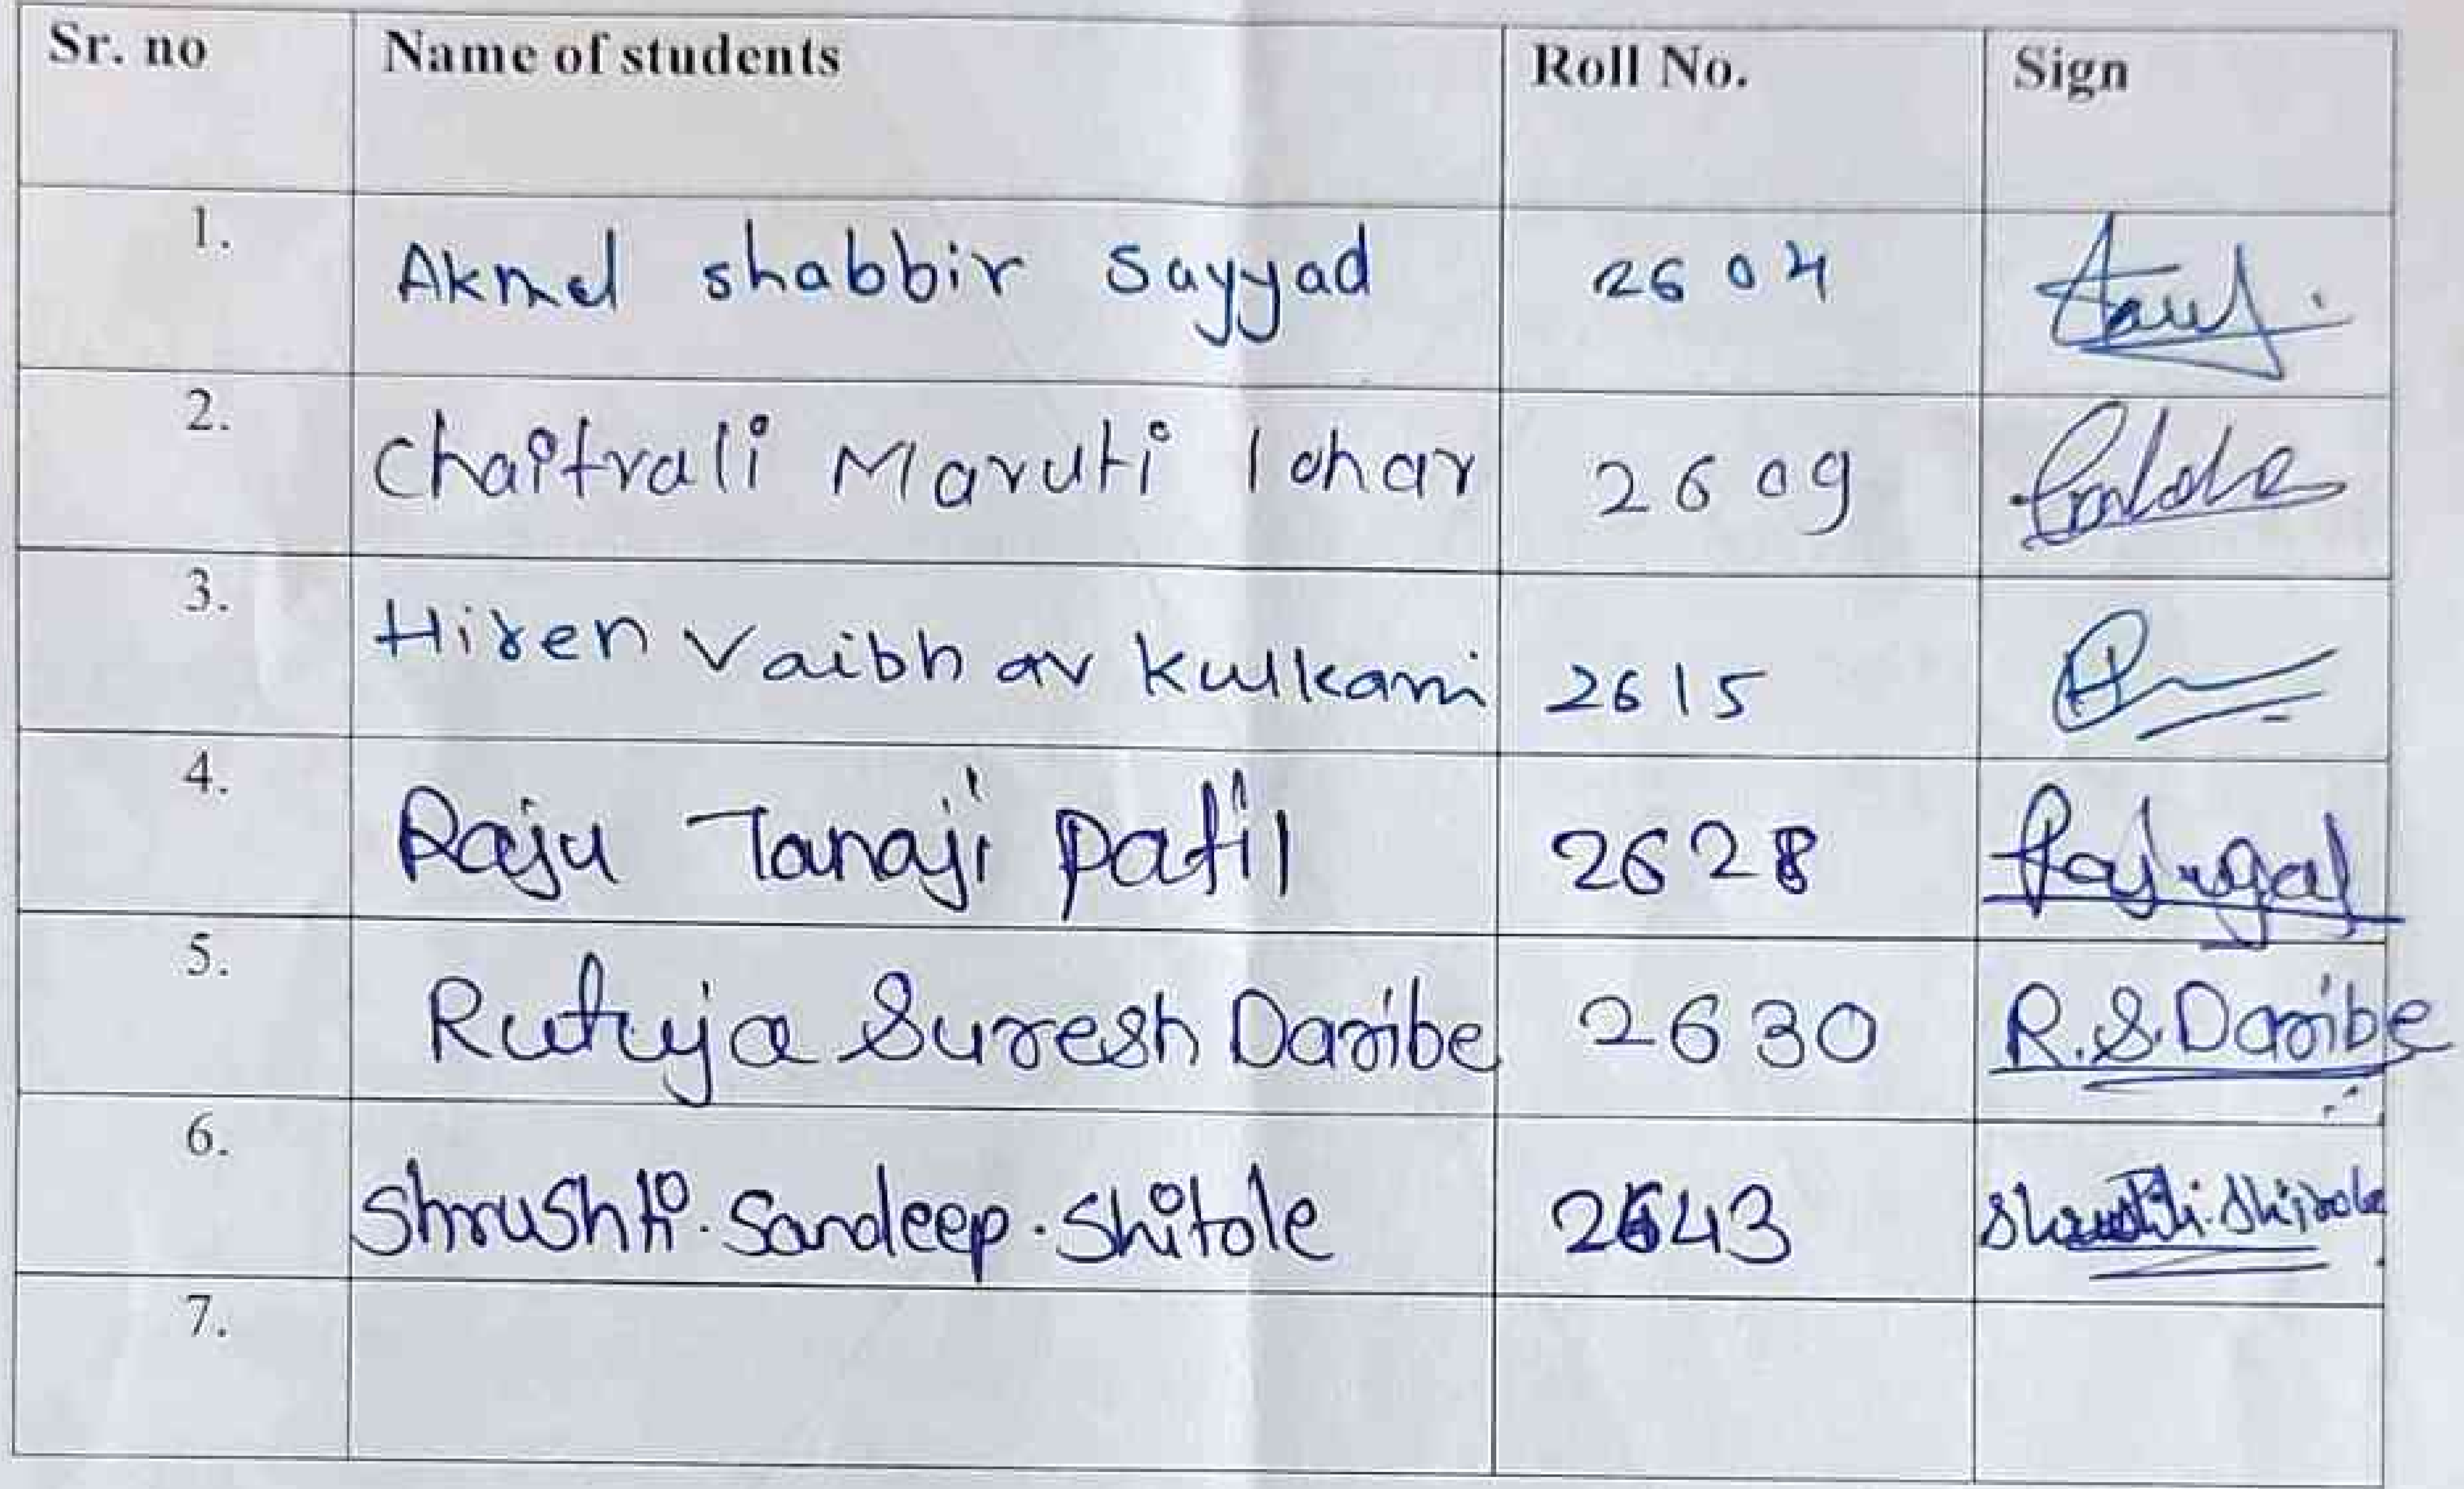 Sr. no Name of students Roll No. Sign
1. Akmal shabbir Sayyad 2604
2. Chaitrali Maruti lohar 2609
3. Hiren Vaibhav Kulkarni 2615
4. Raju Tanaji patil 2628
5. Rutuja Suresh Daribe 2630 R.S.Daribe
6. Shrushti. Sandeep. Shitole 2643 Shrushti. Shitole
7.